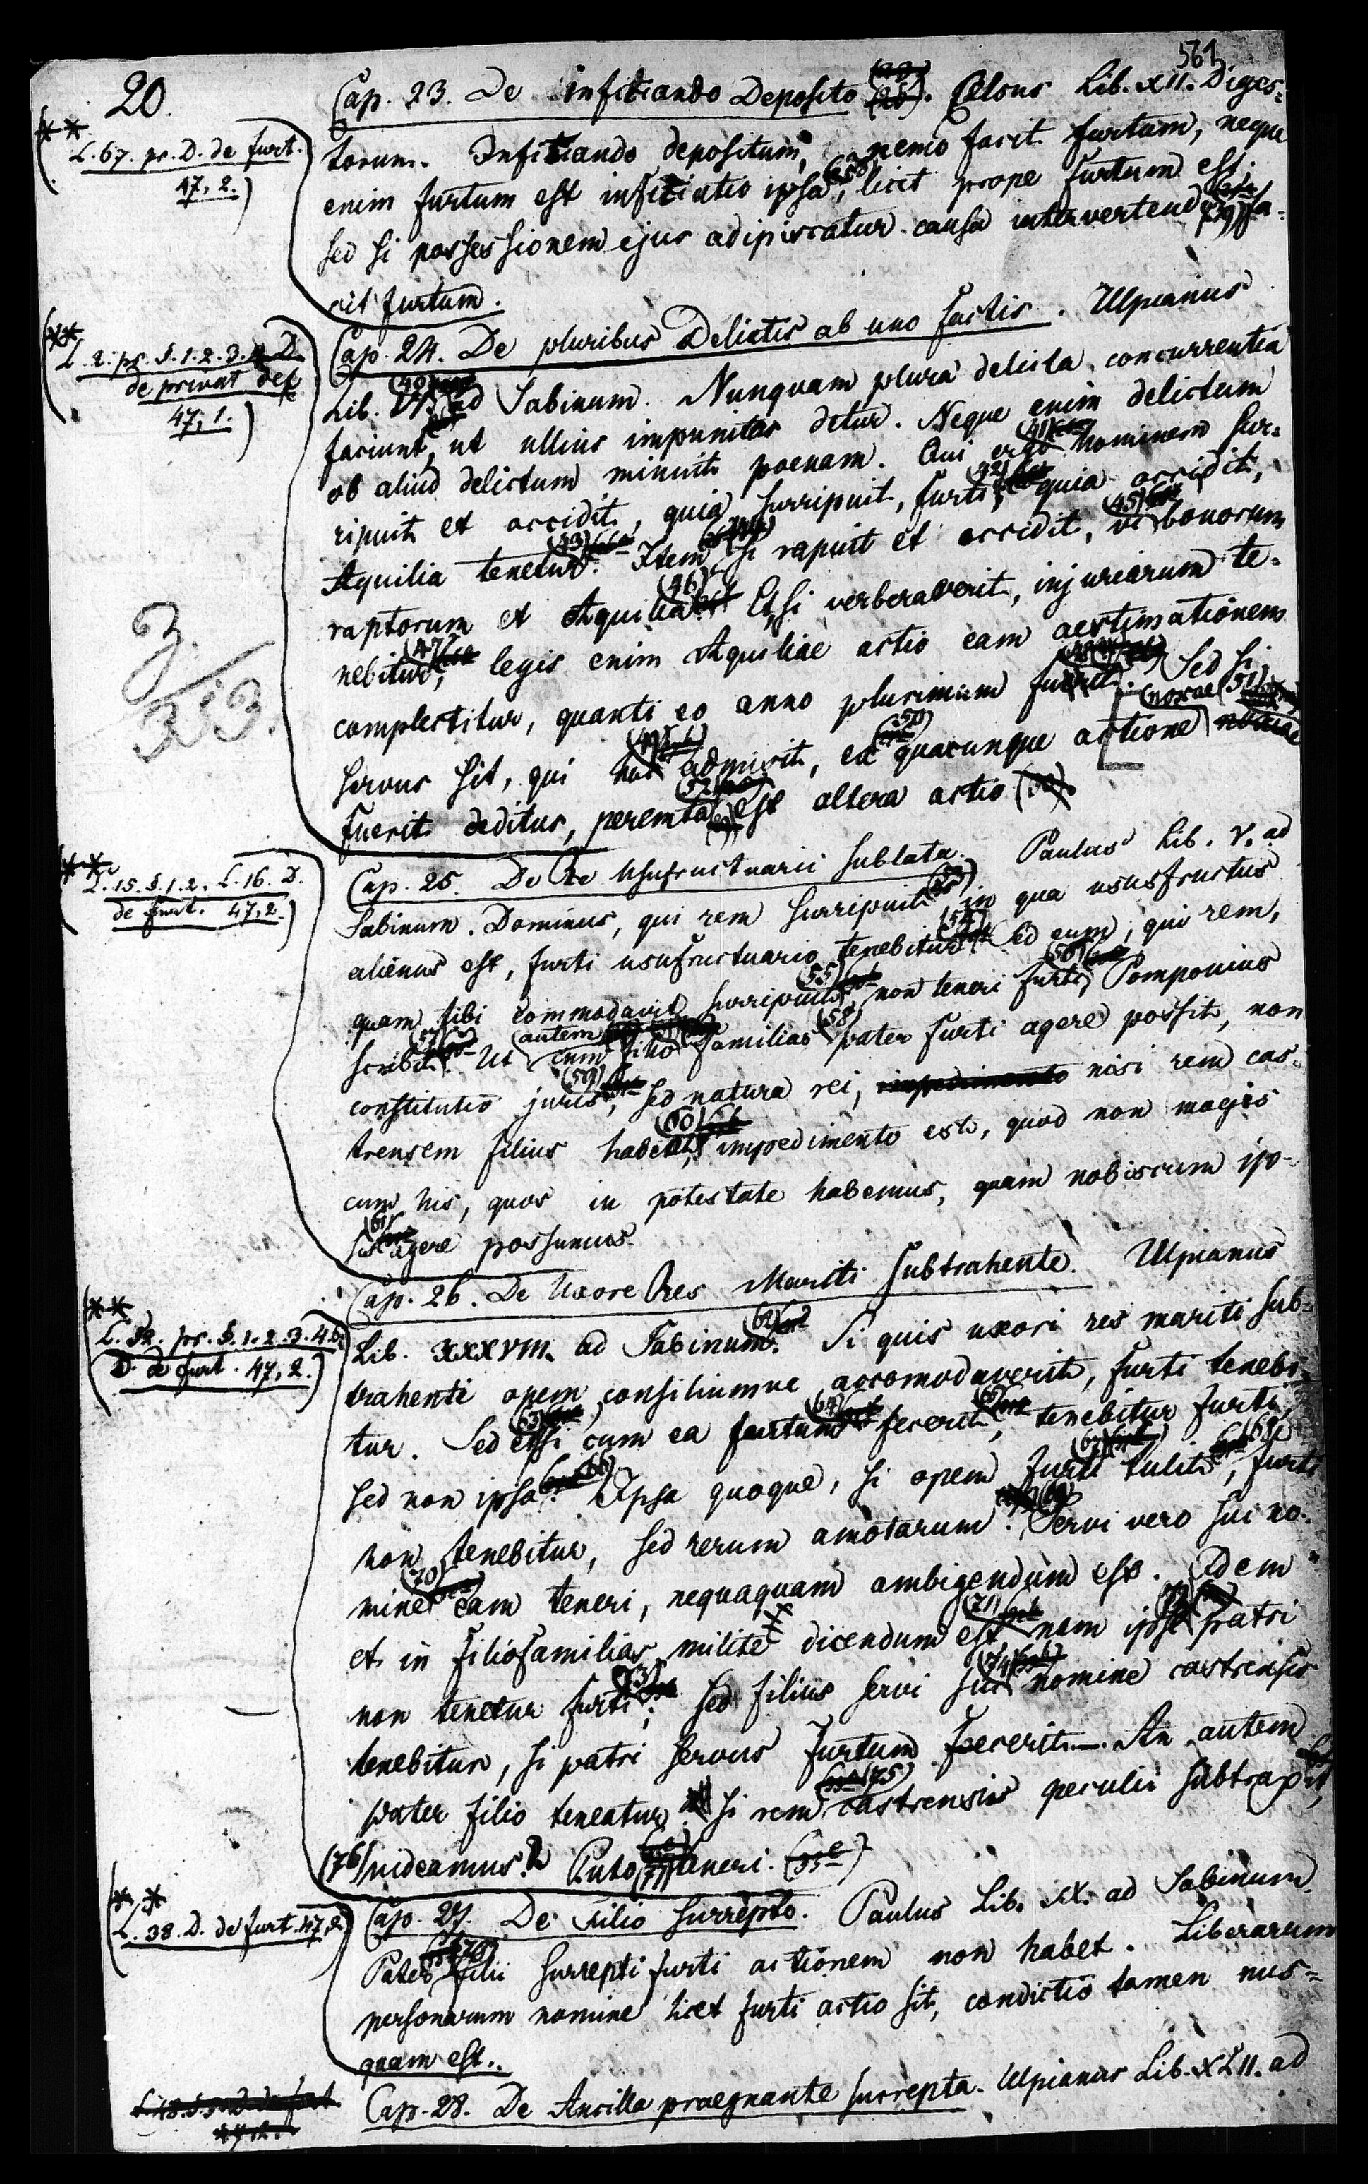 561
20.
Cap. 23. De Infitiando Deposito (25). Celsus Lib. XII. Diges-
(**
L. 67. pr. D. de furt.
47, 2.)
torum. Infitiando depositum, nemo facit furtum, neque
enim furtum est infitiatio ipsa, licet prope furtum est;
sed si possessionem ejus adipiscatur causa intervertendi, fa-
cit furtum.
(**
L. 2. pr. §. 1. 2. 3. D.
de privat. del.
47, 1.)
Cap. 24. De pluribus Delictis ab uno factis. Ulpianus
Lib. ad Sabinum. Nunquam plura delicta concurrentia
faciunt, ut ullius impunitas detur. Neque enim delictum
ob aliud delictum minuit poenam. Qui ergo hominem sur-
ripuit et occidit, quia surripuit, furti, quia occidit,
Aquilia tenetur. Item si rapuit et occidit, vi bonorum
raptorum et Aquilia. Et si verberaverit, injuriarum te-
nebitur; legis enim Aquiliae actio eam aestimationem
complectitur, quanti eo anno plurimum fuerit. Sed si
3/333.
servus sit, qui haec admisit, ex quacunque actione noxae (51)
fuerit deditus, peremta est altera actio
(**
L. 15. §. 1. 2. L. 16. D.
de furt. 47, 2.)
Cap. 25. De Re Usufructuarii sublata. Paulus Lib. V. ad
Sabinum. Dominus, qui rem surripuit, in qua ususfructus
alienus est, furti usufructuario tenebitur. Sed eum, qui rem,
quam sibi commodavit, surripuit, non teneri furti, Pomponius
scribit. Ut autem cum filio familias pater furti agere possit, non
constitutio juris, sed natura rei, nisi rem cas-
trensem filius habeat, impedimento est, quod non magis
cum his, quos in potestate habemus, quam nobiscum ip-
si agere possumus.
(**
L. 52. pr. §. 1. 2. 3. 4. 6.
D. de furt. 47, 2.)
Cap. 26. De Uxore Res Mariti subtrahente. Ulpianus
Lib. XXXVIII. ad Sabinum. Si quis uxori res mariti sub-
trahenti opem consiliumve accomodaverit, furti tenebi-
tur. Sed etsi cum ea furtum fecerit, tenebitur furti,
sed non ipsa. Ipsa quoque, si opem furi tulit, furti
non tenebitur, sed rerum amotarum. Servi vero sui no-
mine eam teneri, nequaquam ambigendum est. Idem
et in filiofamilias milite dicendum est nam ipse patri
non tenetur furti; sed filius servi sui nomine castrensis
tenebitur, si patri servus furtum fecerit. — An autem
pater filio teneatur si rem castrensis peculii subtraxit,
(76) videamus? Puto teneri.
(**
L. 38. D. de furt. 47, 2.)
Cap. 27. De Filio surrepto. Paulus Lib. IX. ad Sabinum.
Pater filii surrepti furti actionem non habet. Liberarum
personarum nomine licet furti actio sit, condictio tamen nus-
quam est.
Cap. 28. De Ancilla praegnante surrepta. Ulpianus Lib. XLII. ad